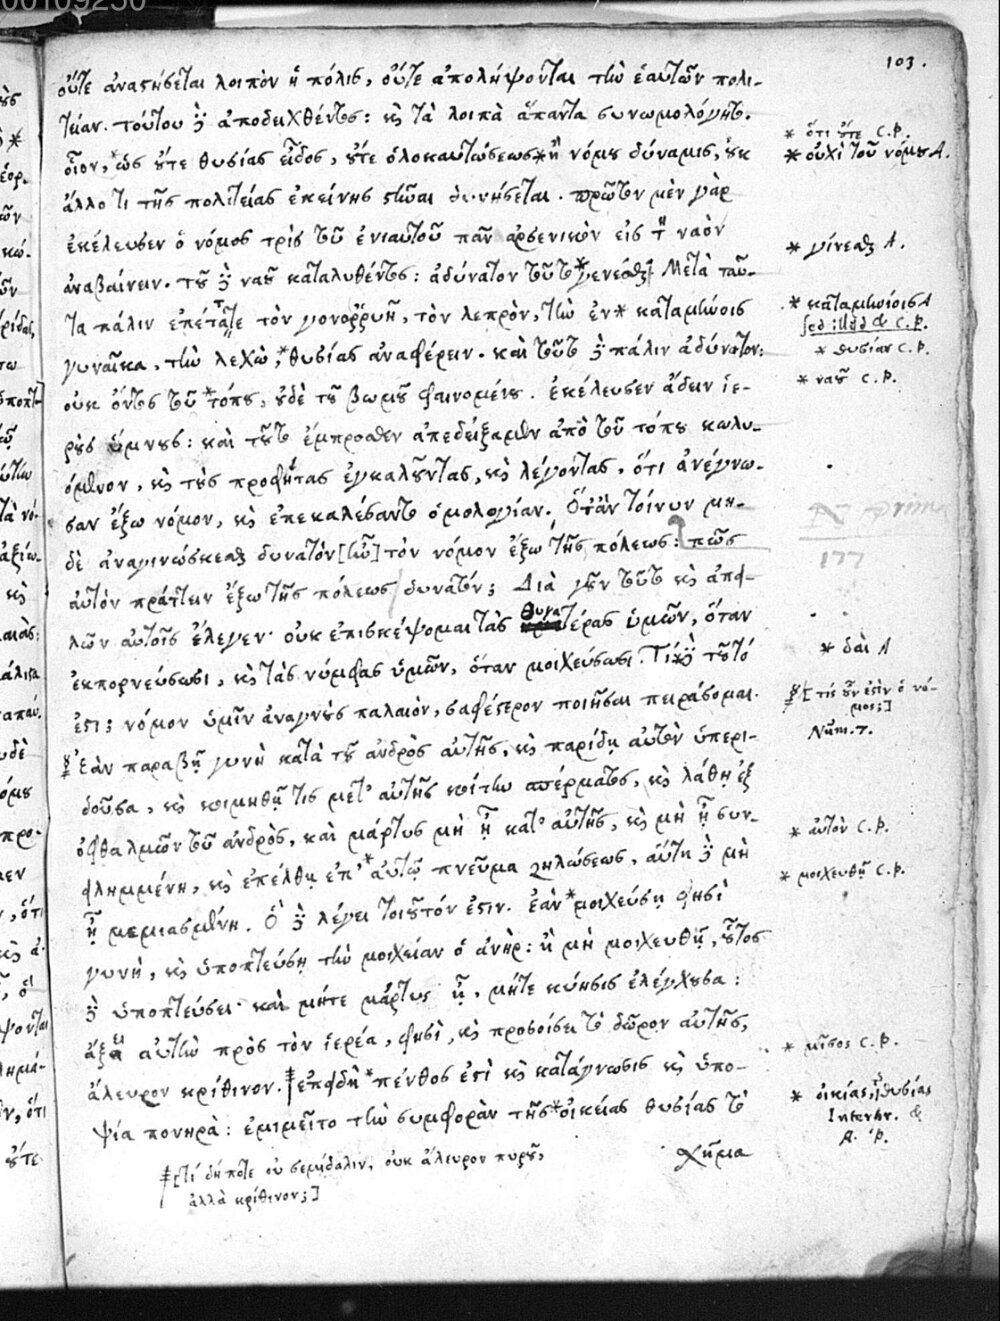 00109250
103.
οὔτε ἀναστήσεται λοιπὸν ἡ πόλις, οὔτε ἀπολήψονται τὴν ἑαυτῶν πολι-
τείαν. τούτου δὲ ἀποδειχθέντος: καὶ τὰ λοιπὰ ἅπαντα συνωμολόγητο.
οἷον, *ὡς οὔτε θυσίας εἶδος, οὔτε ὁλοκαυτώσεως *ἢ νόμου δύναμις, οὐκ
ἄλλο τι τῆς πολιτείας ἐκείνης στῆναι δυνήσεται. πρῶτον μὲν γὰρ
ἐκέλευσεν ὁ νόμος τρὶς τοῦ ἐνιαυτοῦ πᾶν ἀρσενικὸν εἰς τὸν ναὸν
ἀναβαίνειν. τοῦ δὲ ναοῦ καταλυθέντος: ἀδύνατον τοῦτο *γενέσθαι. Μετὰ ταῦ-
τα πάλιν ἐπέταττε τὸν γονορρυῆ, τὸν λεπρὸν, τὴν ἐν * καταμηνίοις
γυναῖκα, τὴν λεχὼ, *θυσίας ἀναφέρειν. καὶ τοῦτο δὲ πάλιν ἀδύνατον:
οὐκ ὄντος τοῦ *τόπου, οὐδὲ τοῦ βωμοῦ φαινομένου. ἐκέλευσεν ᾄδειν ἱε-
ροὺς ὕμνους: καὶ τοῦτο ἔμπροσθεν ἀπεδείξαμεν ἀπὸ τοῦ τόπου κωλυ-
όμενον, καὶ τοὺς προφήτας ἐγκαλοῦντας, καὶ λέγοντας, ὅτι ἀνέγνω-
σαν ἔξω νόμον, καὶ ἐπεκαλέσαντο ὁμολογίαν. Ὅταν τοίνυν μη-
δὲ ἀναγινώσκεσθαι δυνατὸν [ὦ] τὸν νόμον ἔξω τῆς πόλεως: πῶς
αὐτὸν πράττειν ἔξω τῆς πόλεως δυνατόν; Διὰ γοῦν τοῦτο καὶ ἀπει-
λῶν αὐτοῖς ἔλεγεν· οὐκ ἐπισκέψομαι τὰς θυγατέρας ὑμῶν, ὅταν
ἐκπορνεύσωσι, καὶ τὰς νύμφας ὑμῶν, ὅταν μοιχεύσωσι. Τί *δὲ τοῦτό
ἐστι; νόμον ὑμῖν ἀναγνοὺς παλαιὸν, σαφέστερον ποιῆσαι πειράσομαι.
Ἐὰν παραβῇ γυνὴ κατὰ τοῦ ἀνδρὸς αὐτῆς, καὶ παρίδῃ αὐτὸν ὑπερι-
δοῦσα, καὶ κοιμηθῇ τις μετ' αὐτῆς κοίτην σπέρματος, καὶ λάθῃ ἐξ
ὀφθαλμῶν τοῦ ἀνδρὸς, καὶ μάρτυς μὴ ᾖ κατ' αὐτῆς, καὶ μὴ ᾖ συν-
ειλημμένη, καὶ ἐπέλθῃ ἐπ' *αὐτῷ πνεῦμα ζηλώσεως, αὕτη δὲ μὴ
ᾖ μεμιασμένη. Ὃ δὲ λέγει τοιοῦτόν ἐστιν. ἐὰν *μοιχεύσῃ φησὶ
γυνὴ, καὶ ὑποπτεύσῃ τὴν μοιχείαν ὁ ἀνήρ: ἢ μὴ μοιχευθῇ, οὗτος
δὲ ὑποπτεύσει· καὶ μήτε μάρτυς ᾖ, μήτε κύησις ἐλέγχουσα:
ἄξει αὐτὴν πρὸς τὸν ἱερέα, φησὶ, καὶ προσοίσει τὸ δῶρον αὐτῆς,
ἄλευρον κρίθινον. ἐπειδὴ *πένθος ἐστὶ καὶ κατάγνωσις καὶ ὑπο-
ψία πονηρά: ἐμιμεῖτο τὴν συμφορὰν τῆς *οἰκείας θυσίας τὸ
σχῆμα
[τί δήποτε οὐ σεμίδαλιν, οὐκ ἄλευρον πυροῦ,
ἀλλὰ κρίθινον;]
* ὅτι οὔτε C.P.
* οὐχὶ τοῦ νόμου A.
* γίνεσθαι A.
* καταμηνίοις A
sed illud & C.P.
* θυσίαν C.P.
* ναοῦ C.P.
177
* δαὶ A
[τίς οὖν ἐστὶν ὁ νό-
μος;]
Num. 7.
* αὐτὸν C.P.
* μοιχευθῇ C.P.
* μῖσος C.P.
* οἰκίας, ἡ θυσίας
Interpr. &
A. P.